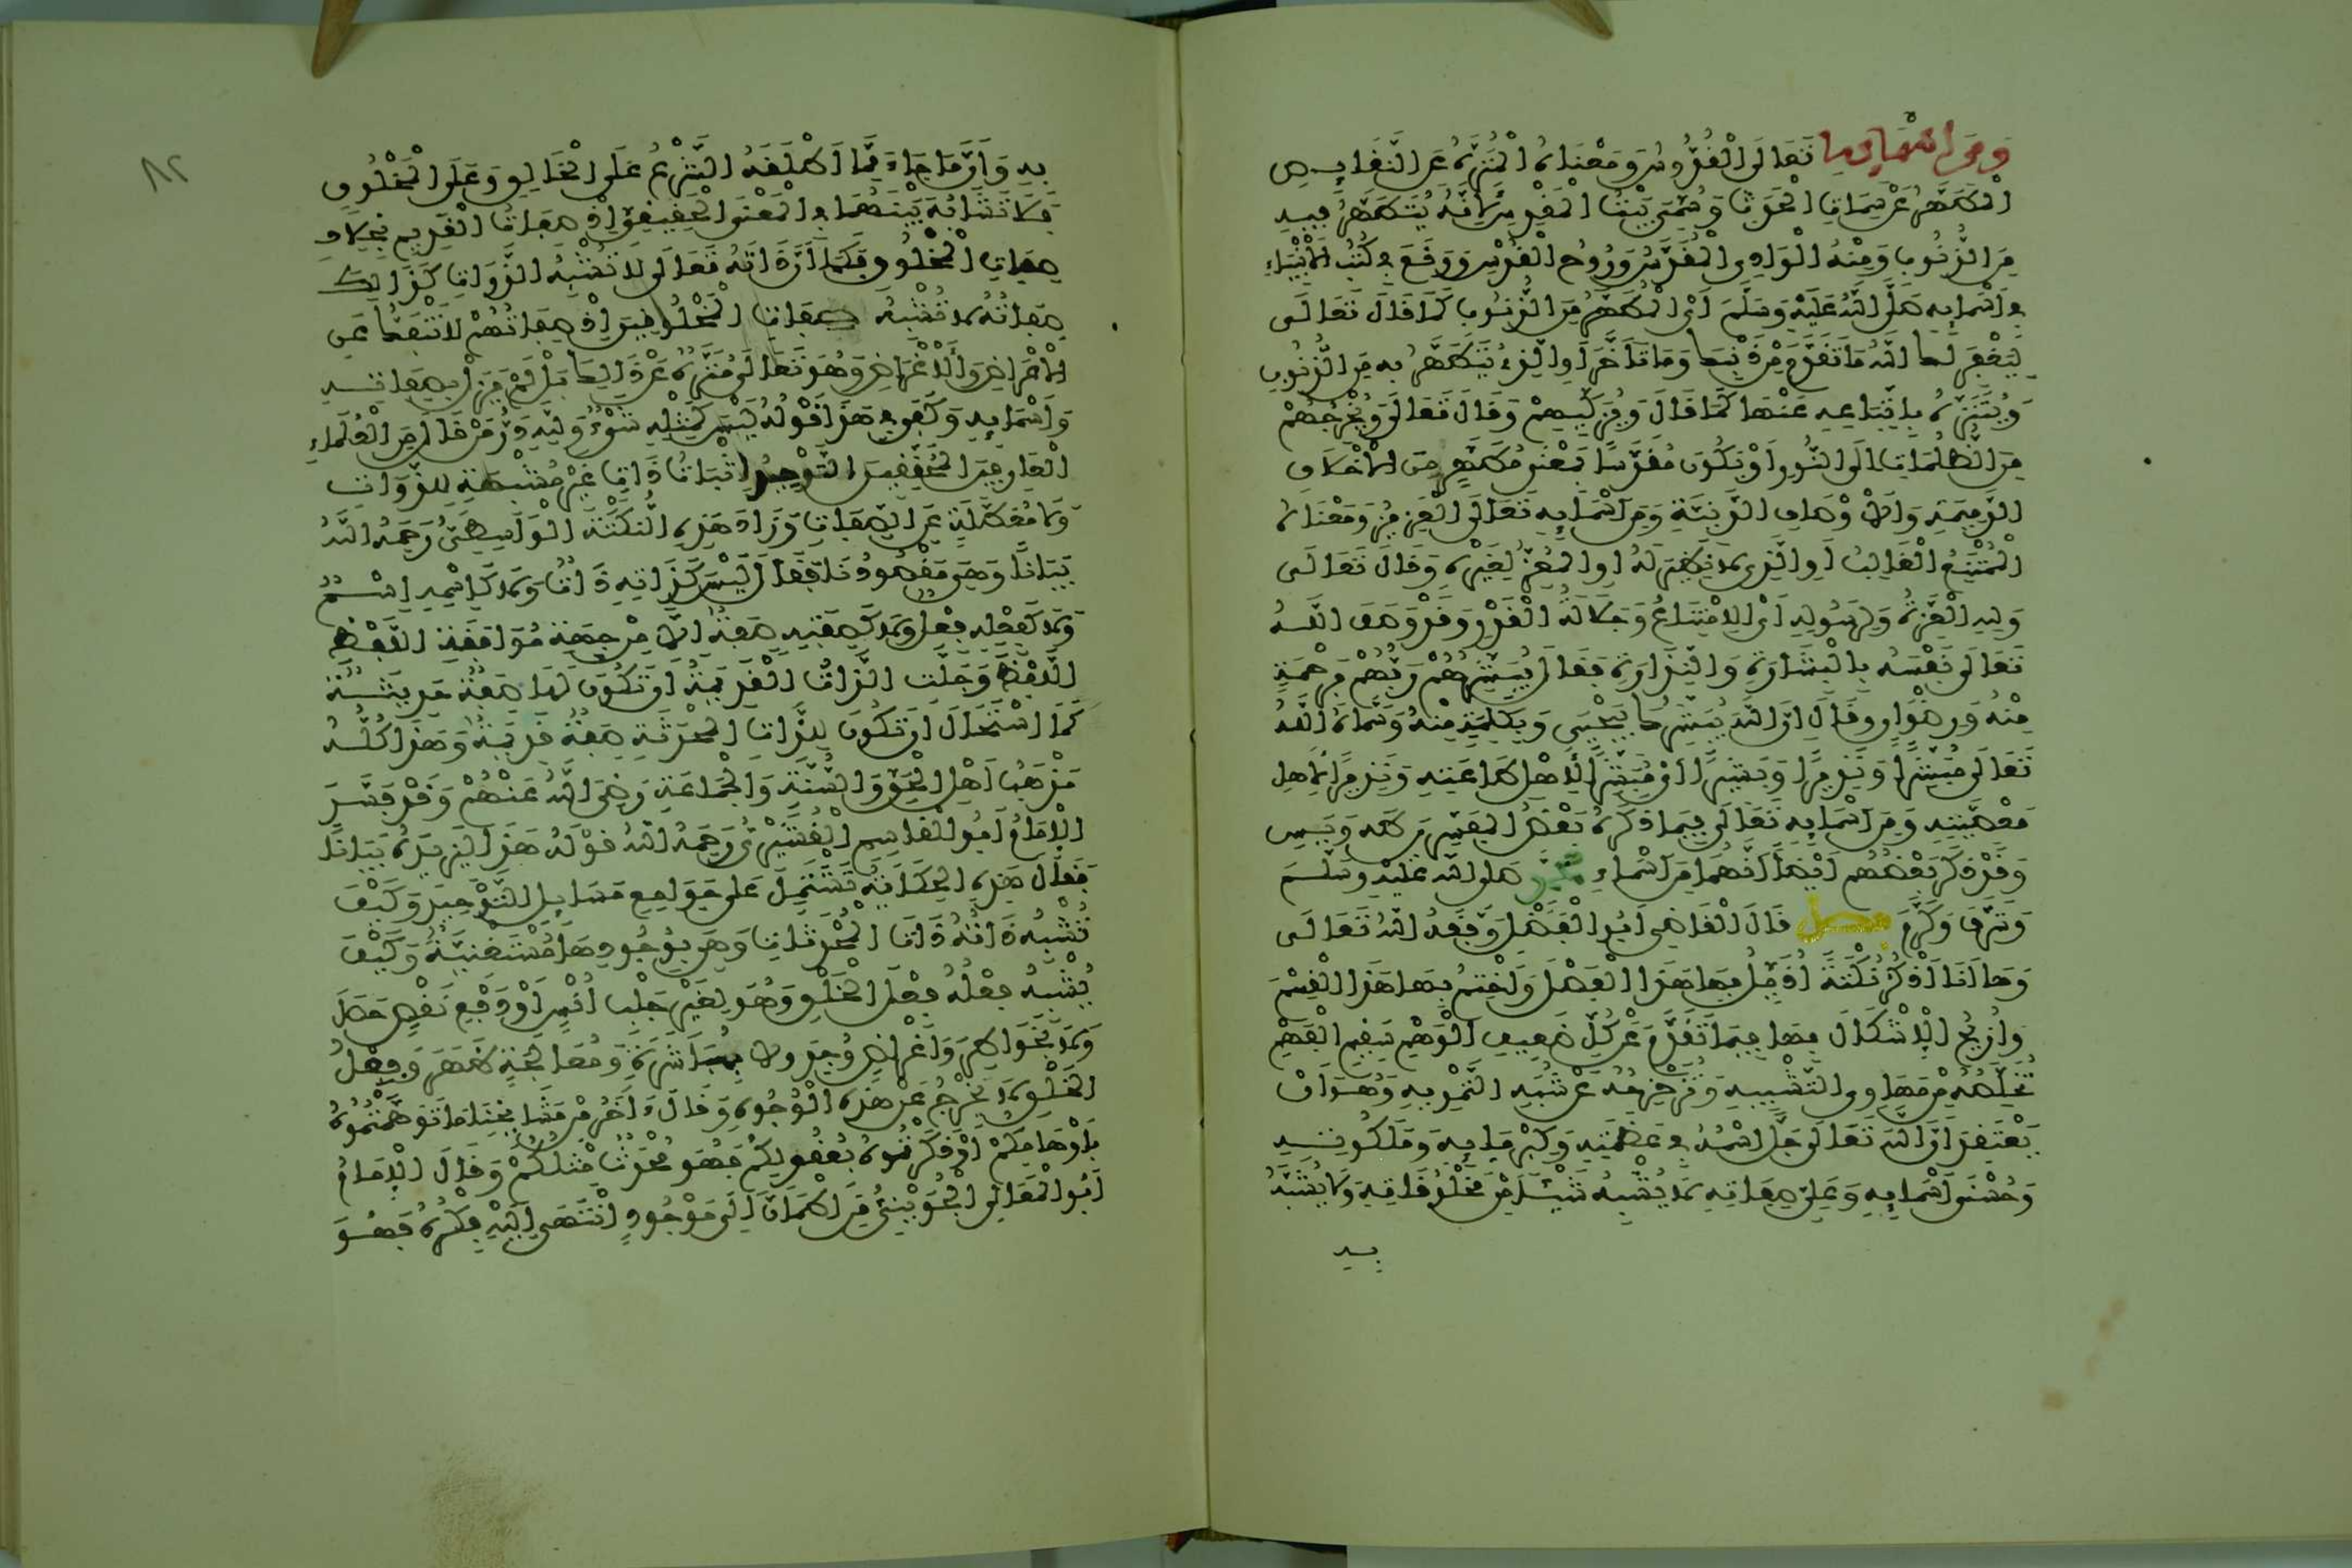 ومن أسمائه تعالى القدوس ومعناه المنزه عن النقايص
المطهر عن سمات الحدث وسمي بيت المقدس لأنه يتطهر فيه
من الذنوب ومنه الوادي المقدس وروح القدس ووقع في كتب الأنبياء
في أسمايه صلى الله عليه وسلم أي المطهر من الذنوب كما قال تعالى
ليغفر لك الله ما تقدم من ذنبك وما تأخر أو الذي يتطهر به من الذنوب
ويتنزه باتباعه عنها كما قال ويزكيهم وقال تعالى ويخرجهم
من الظلمات إلى النور أو يكون مقدسا بمعنى مطهر من الأخلاق
الذميمة والأوصاف الدنية ومن أسمايه تعالى العزيز ومعناه
الممتنع الغالب أو الذي لا نظير له أو المعز لغيره وقال تعالى
ولله العزة ولرسوله أي الامتناع وجلالة القدر وقد وصف الله
تعالى نفسه بالبشارة والنذارة فقال يبشرهم ربهم برحمة
منه ورضوان وقال إن الله يبشرك بيحيى وبكلمة منه وسماه الله
تعالى مبشرا ونذيرا وبشيرا أي مبشرا لأهل طاعته ونذيرا لأهل
معصيته ومن أسمايه تعالى فيما ذكره بعض المفسرين طه ويس
وقد ذكر بعضهم أيضا أنهما من أسماء محمد صلى الله عليه وسلم
وشرف وكرم فصل قال القاضي أبو الفضل وفقه الله تعالى
وها أنا أذكر نكتة أذيل بها هذا الفصل وأختم بها هذا القسم
وأزيح الإشكال بها فيما تقدم عن كل ضعيف الوهم سقيم الفهم
تخلصه من مهاوي التشبيه وتزحزحه عن شبه التمويه وهو أن
يعتقد أن الله تعالى جل اسمه في عظمته وكبريايه وملكوته
وحسنى أسمايه وعلي صفاته لا يشبه شيئا من مخلوقاته ولا يشبه
به
٨٢
به وأن ما جاء مما أطلقه الشرع على الخالق وعلى المخلوق
فلا تشابه بينهما في المعنى الحقيقي إذ صفات القديم بخلاف
صفات المخلوق فكما أن ذاته تعالى لا تشبه الذوات كذلك
صفاته لا تشبه صفات المخلوقين إذ صفاتهم لا تنفك عن
الأعراض والأغراض وهو تعالى منزه عن ذلك بل لم يزل بصفاته
وأسمايه وكفى في هذا قوله ليس كمثله شيء ولله در من قال من العلماء
العارفين المحققين التوحيد إثبات ذات غير مشبهة للذوات
ولا معطلة عن الصفات وزاد هذه النكتة الواسطي رحمه الله
بيانا وهي مقصودنا فقال ليس كذاته ذات ولا كاسمه اسم
ولا كفعله فعل ولا كصفته صفة إلا من جهة موافقة اللفظ
اللفظ وجلت الذات القديمة أن تكون لها صفة حديثة
كما استحال أن تكون للذات المحدثة صفة قديمة وهذا كله
مذهب أهل الحق والسنة والجماعة رضي الله عنهم وقد فسر
الإمام أبو القاسم القشيري رحمه الله قوله هذا ليزيده بيانا
فقال هذه الحكاية تشتمل على جوامع مسايل التوحيد وكيف
تشبه ذاته ذات المحدثات وهي بوجودها مستغنية وكيف
يشبه فعله فعل الخلق وهو لغير جلب أنس أو دفع نقص حصل
ولا بخواطر وأغراض وجد ولا بمباشرة ومعالجة ظهر وفعل
الخلق لا يخرج عن هذه الوجوه وقال ءاخر من مشايخنا ما توهمتموه
بأوهامكم أو أدركتموه بعقولكم فهو محدث مثلكم وقال الإمام
أبو المعالي الجويني من اطمأن إلى موجود انتهى إليه فكره فهو